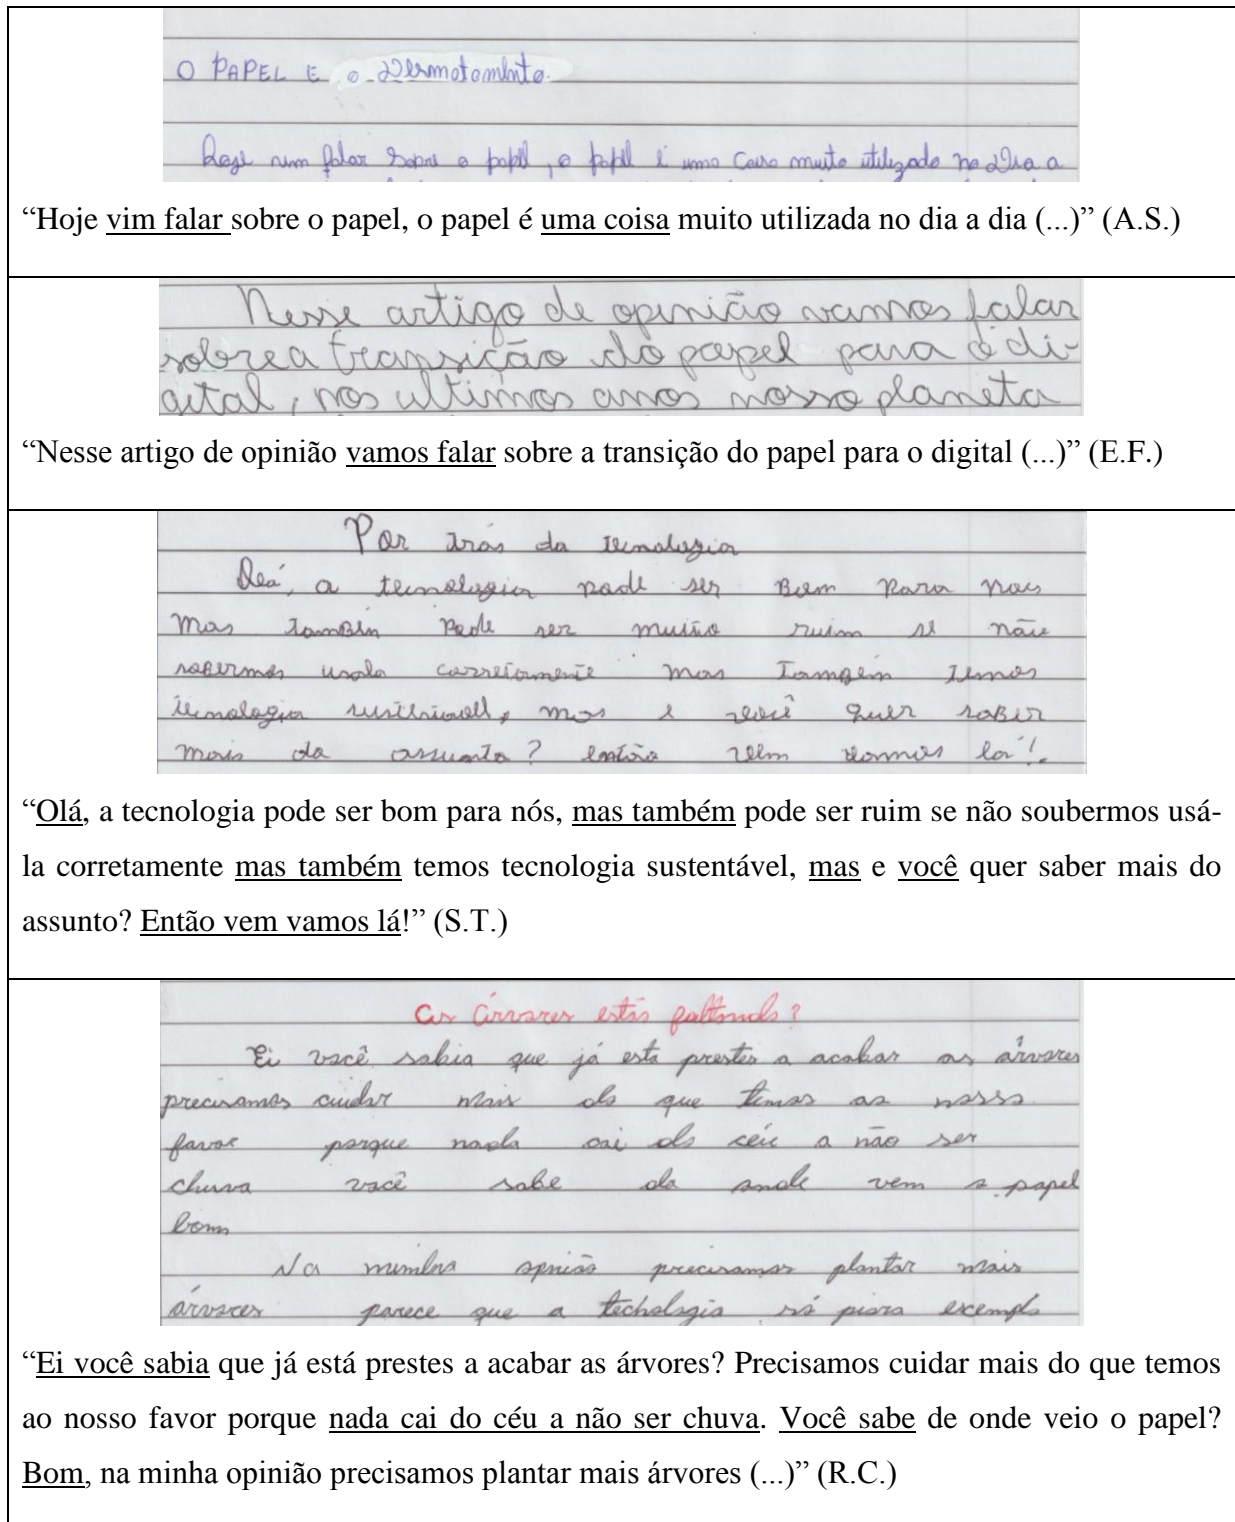 O PAPEL E o Desmatamento.
Hoje vim falar sobre o papel, o papel é uma coisa muito utilizado no dia a
“Hoje vim falar sobre o papel, o papel é uma coisa muito utilizada no dia a dia (...)” (A.S.)
Nesse artigo de opinião vamos falar
sobre a transição do papel para o di-
gital, nos ultimos anos nosso planeta
“Nesse artigo de opinião vamos falar sobre a transição do papel para o digital (...)” (E.F.)
Por trás da tecnologia
Olá, a tecnologia pode ser Bom Para nos
mas também Pode ser muito ruim se não
sabermos usala corretamente mas Também Temos
tecnologia mas e você quer saber
mais do assunto? então vem vamos lá!.
“Olá, a tecnologia pode ser bom para nós, mas também pode ser ruim se não soubermos usá-
la corretamente mas também temos tecnologia sustentável, mas e você quer saber mais do
assunto? Então vem vamos lá!” (S.T.)
As árvores estão faltando?
Ei você sabia que já esta prestes a acabar as árvores
precisamos cuidar mais do que temos ao nosso
favor porque nada cai do céu a não ser
chuva você sabe da onde vem o papel
bom
Na minha opnião precisamos plantar mais
arvores parece que a techologia só piora exemplo
“Ei você sabia que já está prestes a acabar as árvores? Precisamos cuidar mais do que temos
ao nosso favor porque nada cai do céu a não ser chuva. Você sabe de onde veio o papel?
Bom, na minha opinião precisamos plantar mais árvores (...)” (R.C.)